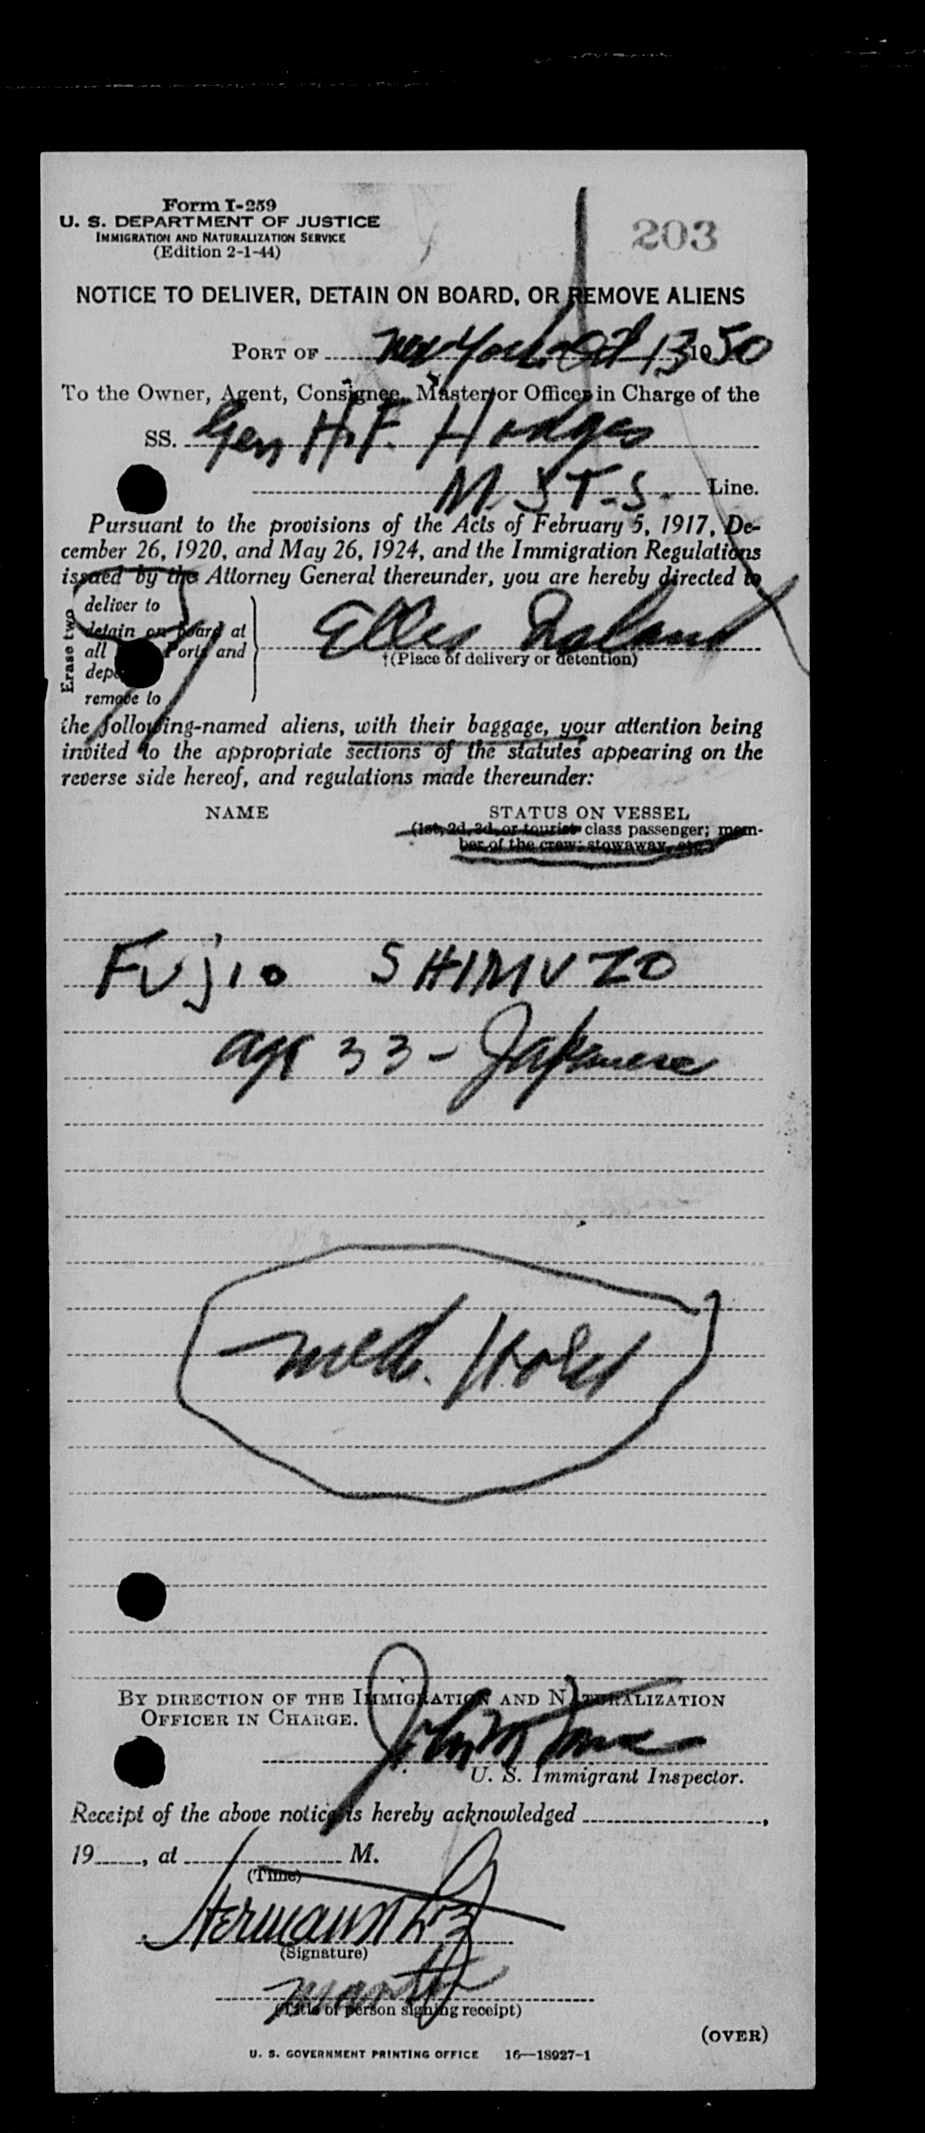 Form I-259
U. S. DEPARTMENT OF JUSTICE
IMMIGRATION AND NATURALIZATION SERVICE
(Edition 2-1-44)
203
NOTICE TO DELIVER, DETAIN ON BOARD, OR REMOVE ALIENS
PORT OF New York Oct 13 1950
To the Owner, Agent, Consignee, Master, or Officer in Charge of the
SS. Gen H.F. Hodges
M.S.T.S. Line.
Pursuant to the provisions of the Acts of February 5, 1917, De-
cember 26, 1920, and May 26, 1924, and the Immigration Regulations
issued by the Attorney General thereunder, you are hereby directed to
Erase two
deliver to
detain on board at
all Ports and
remove to
Ellis Island
†(Place of delivery or detention)
the following-named aliens, with their baggage, your attention being
invited to the appropriate sections of the statutes appearing on the
reverse side hereof, and regulations made thereunder:
NAME STATUS ON VESSEL
(1st, 2d, 3d, or tourist class passenger; mem-
ber of the crew; stowaway, etc.)
Fujio SHIMUZO
age 33 - Japanese
med. Hold
BY DIRECTION OF THE IMMIGRATION AND NATURALIZATION
OFFICER IN CHARGE.
U. S. Immigrant Inspector.
Receipt of the above notice is hereby acknowledged ,
19 , at M.
(Time)
Hermann
(Signature)
(Title of person signing receipt)
(OVER)
U. S. GOVERNMENT PRINTING OFFICE 16—18927-1